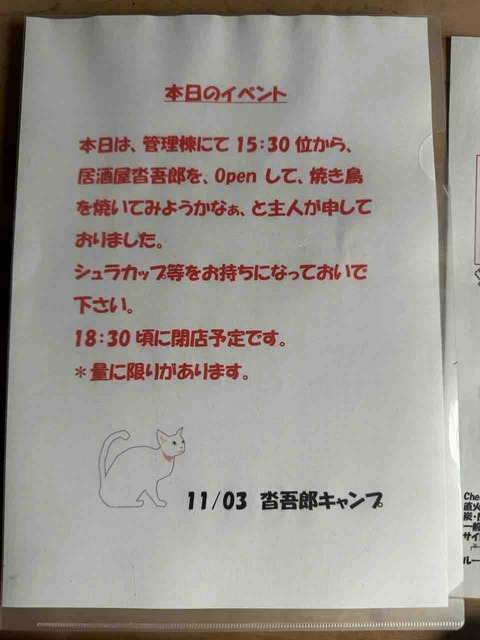 本日のイベント
本日は、管理棟にて 15:30 位から、
居酒屋沓吾郎を、Open して、焼き鳥
を焼いてみようかなぁ、と主人が申して
おりました。
シュラカップ等をお持ちになっておいで
下さい。
18:30 頃に閉店予定です。
＊量に限りがあります。
11/03 沓吾郎キャンプ
Che
直火
炭・
一般
サイ
ルー